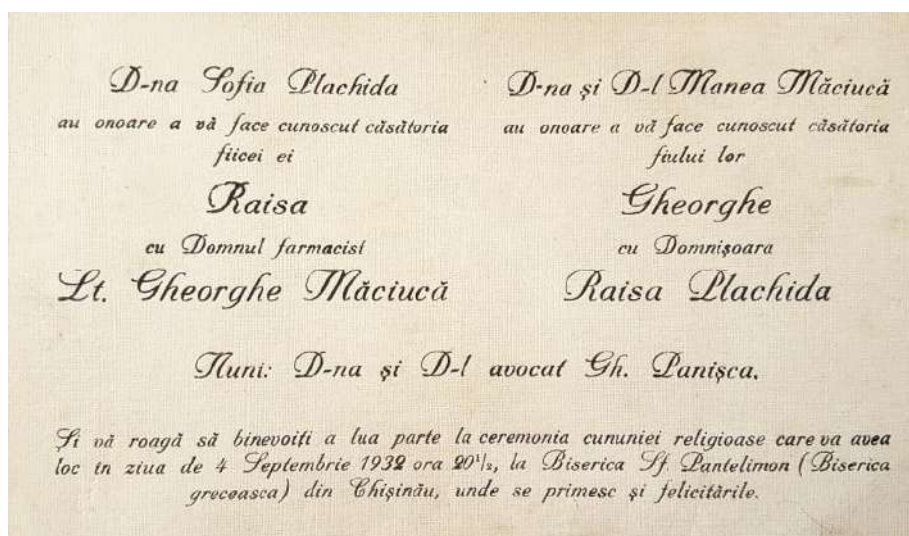 D-na Sofia Plachida
au onoare a vă face cunoscut căsătoria
fiicei ei
Raisa
cu Domnul farmacist
Lt. Gheorghe Măciucă
D-na și D-l Manea Măciucă
au onoare a vă face cunoscut căsătoria
fiului lor
Gheorghe
cu Domnișoara
Raisa Plachida
Nuni: D-na și D-l avocat Gh. Panișca.
Și vă roagă să binevoiți a lua parte la ceremonia cununiei religioase care va avea
loc în ziua de 4 Septembrie 1932 ora 20¹/₂, la Biserica Sf. Pantelimon (Biserica
greceasca) din Chișinău, unde se primesc și felicitările.